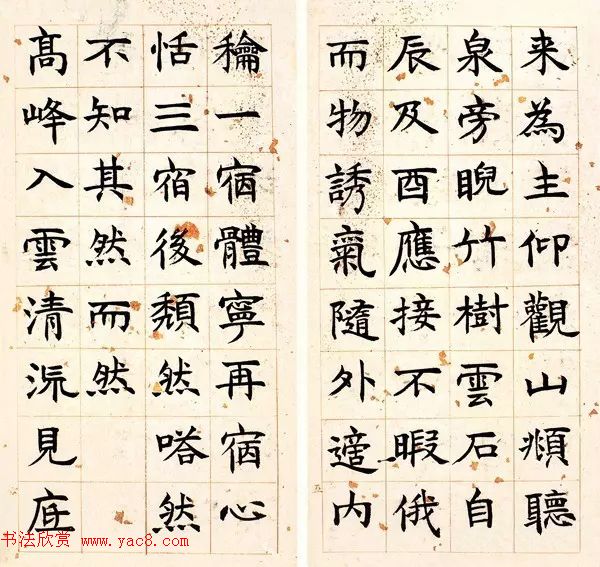 来為主仰觀山頫聽
泉旁睨竹樹雲石自
辰及酉應接不暇俄
而物誘氣隨外適内
龢一宿體寧再宿心
恬三宿後頽然嗒然
不知其然而然
高峰入雲清流見底
书法欣赏 www.yac8.com